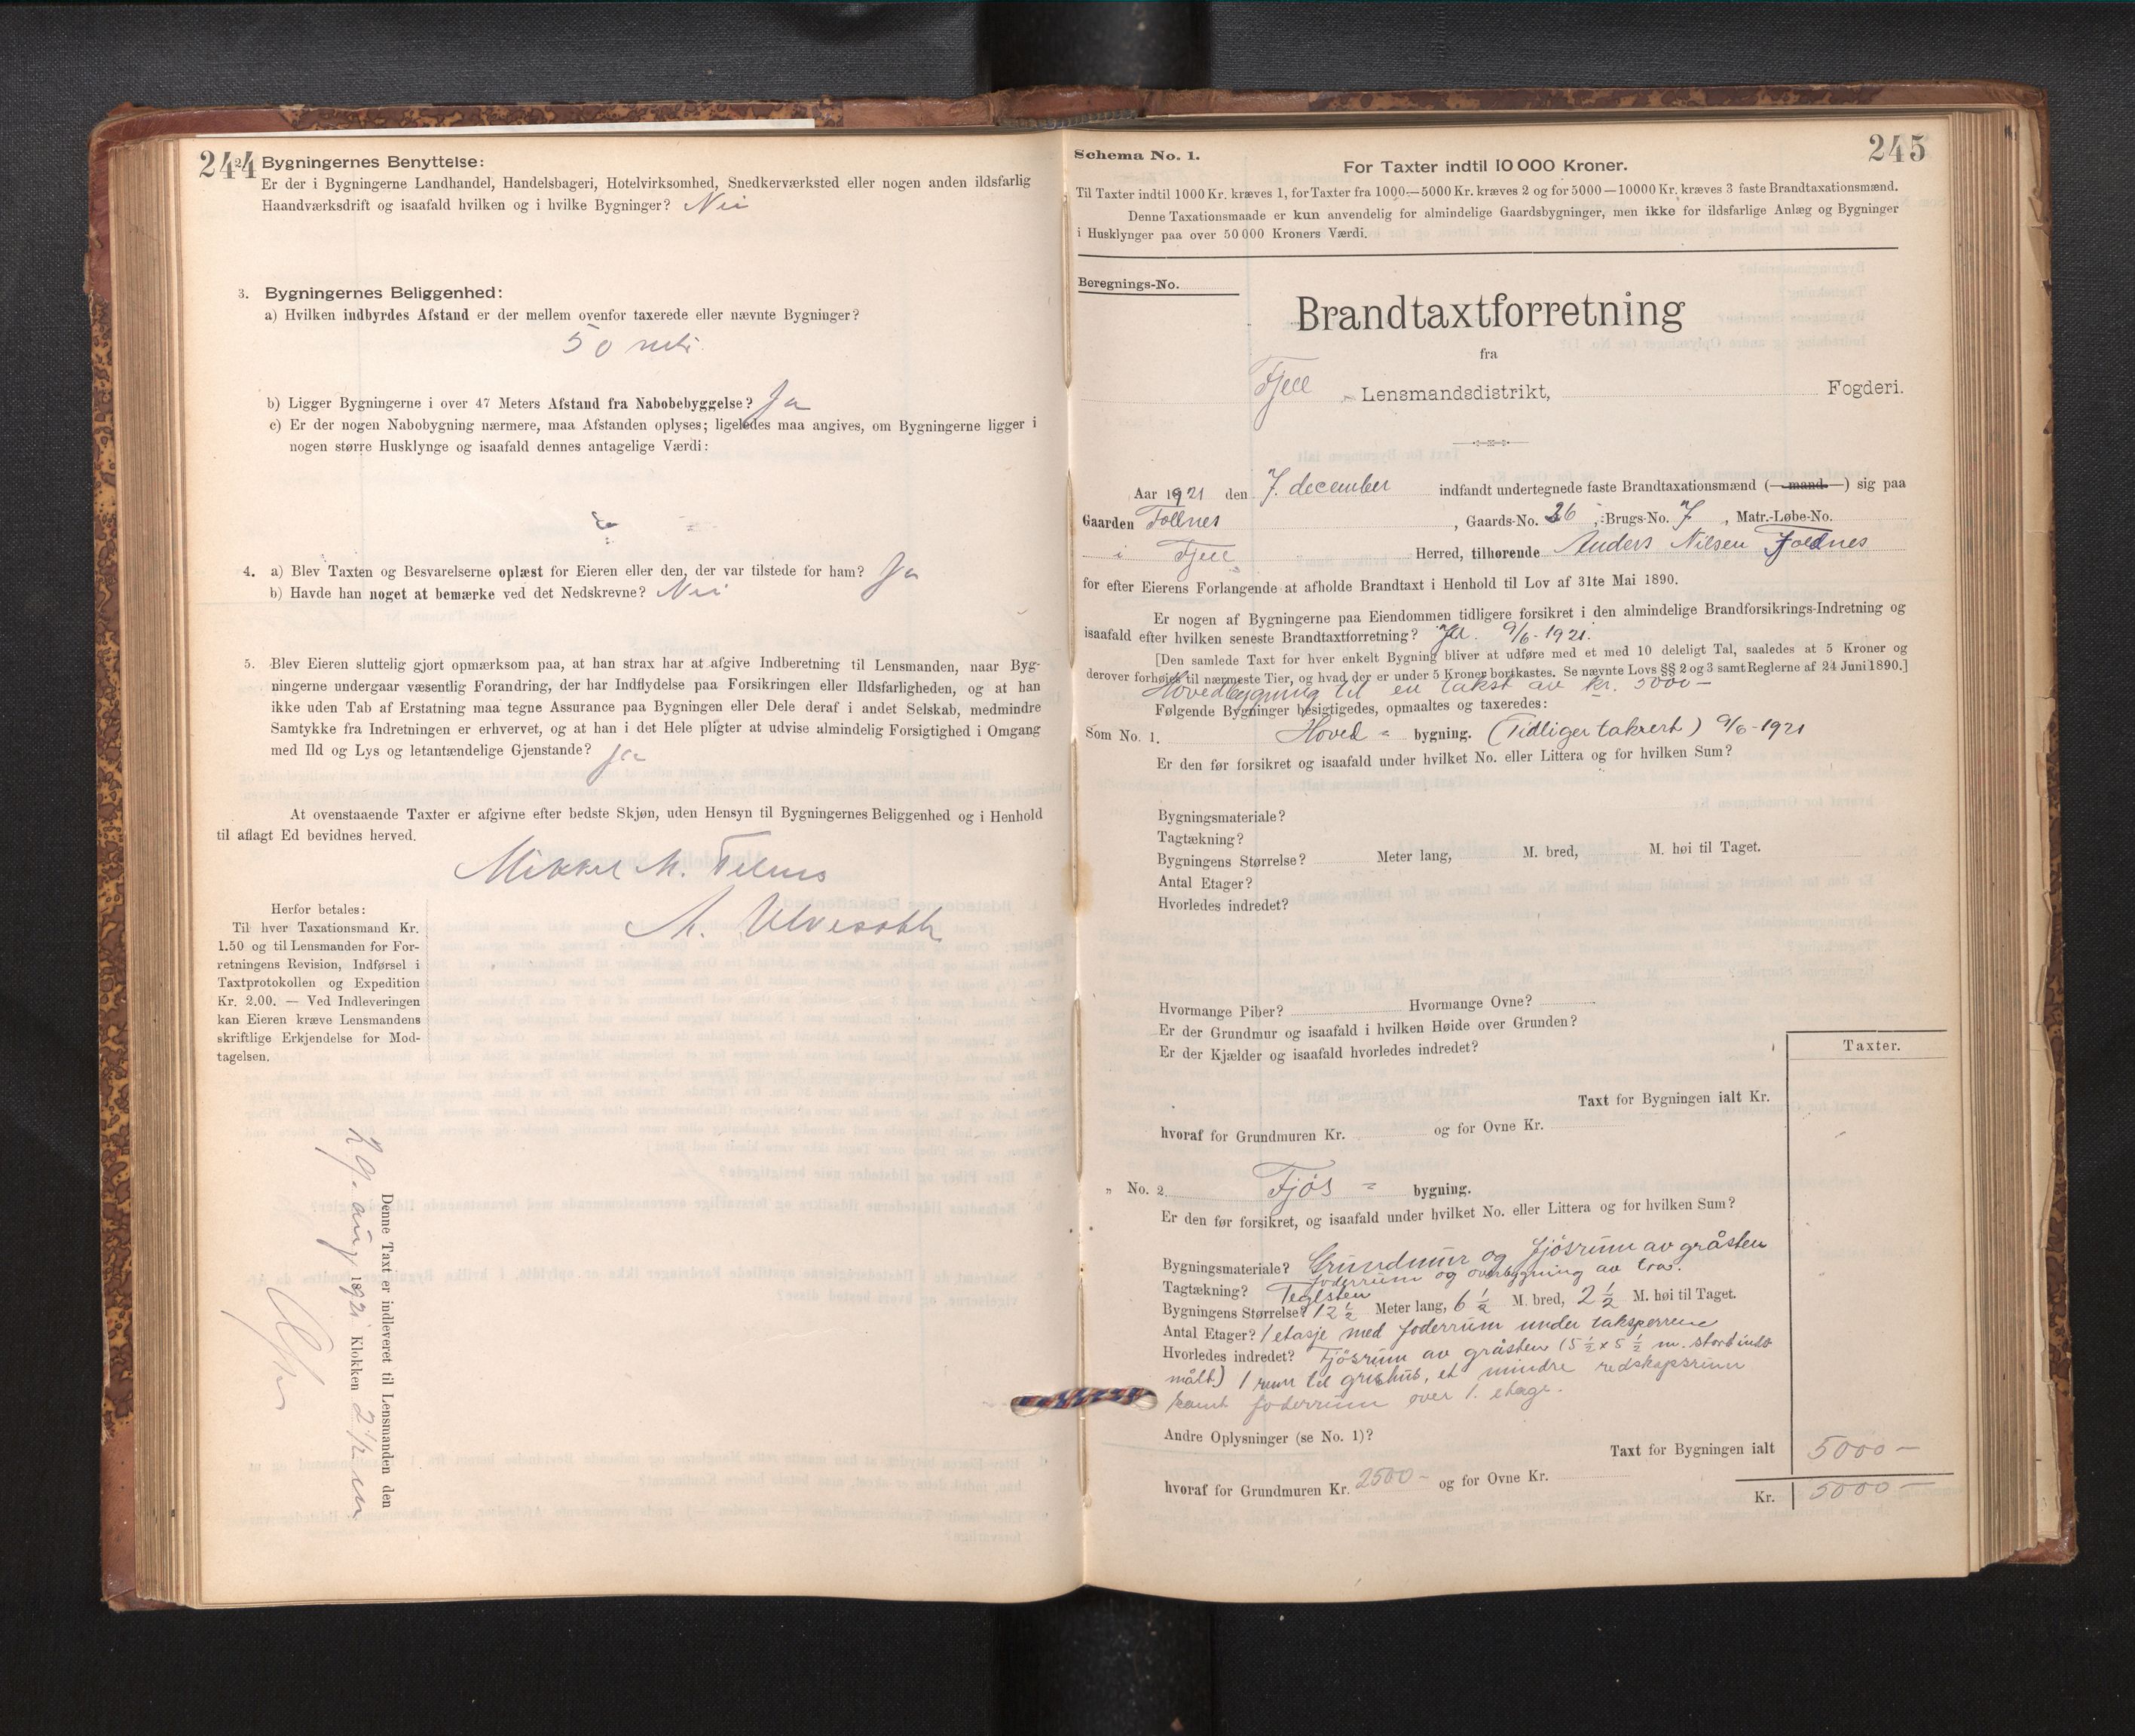 244
Bygningernes Benyttelse:
Er der i Bygningerne Landhandel, Handelsbageri, Hotelvirksomhed, Snedkerværksted eller nogen anden ildsfarlig
Haandværksdrift og isaafald hvilken og i hvilke Bygninger? Nei
3. Bygningernes Beliggenhed:
a) Hvilken indbyrdes Afstand er der mellem ovenfor taxerede eller nævnte Bygninger?
50 mtr.
b) Ligger Bygningerne i over 47 Meters Afstand fra Nabobebyggelse? Ja
c) Er der nogen Nabobygning nærmere, maa Afstanden oplyses; ligeledes maa angives, om Bygningerne ligger i
nogen større Husklynge og isaafald dennes antagelige Værdi:
4. a) Blev Taxten og Besvarelserne oplæst for Eieren eller den, der var tilstede for ham? Ja
b) Havde han noget at bemærke ved det Nedskrevne? Nei
5. Blev Eieren sluttelig gjort opmærksom paa, at han strax har at afgive Indberetning til Lensmanden, naar Byg-
ningerne undergaar væsentlig Forandring, der har Indflydelse paa Forsikringen eller Ildsfarligheden, og at han
ikke uden Tab af Erstatning maa tegne Assurance paa Bygningen eller Dele deraf i andet Selskab, medmindre
Samtykke fra Indretningen er erhvervet, og at han i det Hele pligter at udvise almindelig Forsigtighed i Omgang
med Ild og Lys og letantændelige Gjenstande? Ja
At ovenstaaende Taxter er afgivne efter bedste Skjøn, uden Hensyn til Bygningernes Beliggenhed og i Henhold
til aflagt Ed bevidnes herved.
Mikkel M.
A.
Herfor betales:
Til hver Taxationsmand Kr.
1.50 og til Lensmanden for For-
retningens Revision, Indførsel i
Taxtprotokollen og Expedition
Kr. 2.00. — Ved Indleveringen
kan Eieren kræve Lensmandens
skriftlige Erkjendelse for Mod-
tagelsen.
Denne Taxt er indleveret til Lensmanden den
29. aug 1921 Klokken 2 1/2 em
245
Schema No. 1.
For Taxter indtil 10 000 Kroner.
Til Taxter indtil 1000 Kr. kræves 1, for Taxter fra 1000—5000 Kr. kræves 2 og for 5000—10000 Kr. kræves 3 faste Brandtaxationsmænd.
Denne Taxationsmaade er kun anvendelig for almindelige Gaardsbygninger, men ikke for ildsfarlige Anlæg og Bygninger
i Husklynger paa over 50 000 Kroners Værdi.
Beregnings-No.
Brandtaxtforretning
fra
Fjell Lensmandsdistrikt, Fogderi.
Aar 1921 den 7. december indfandt undertegnede faste Brandtaxationsmænd (—mand—) sig paa
Gaarden Follnes, Gaards-No. 26, Brugs-No. 7, Matr.-Løbe-No.
i Fjell Herred, tilhørende Anders Nilsen Foldnes
for efter Eierens Forlangende at afholde Brandtaxt i Henhold til Lov af 31te Mai 1890.
Er nogen af Bygningerne paa Eiendommen tidligere forsikret i den almindelige Brandforsikrings-Indretning og
isaafald efter hvilken seneste Brandtaxtforretning? Ja. 9/6-1921.
[Den samlede Taxt for hver enkelt Bygning bliver at udføre med et med 10 deleligt Tal, saaledes at 5 Kroner og
derover forhøies til nærmeste Tier, og hvad der er under 5 Kroner bortkastes. Se nævnte Lovs §§ 2 og 3 samt Reglerne af 24 Juni 1890.]
Hovedbygning til en takst av kr. 5000 —
Følgende Bygninger besigtigedes, opmaaltes og taxeredes:
Som No. 1. Hoved - bygning. (Tidliger taksert) 9/6-1921
Er den før forsikret og isaafald under hvilket No. eller Littera og for hvilken Sum?
Bygningsmateriale?
Tagtækning?
Bygningens Størrelse? Meter lang, M. bred, M. høi til Taget.
Antal Etager?
Hvorledes indredet?
Hvormange Piber? Hvormange Ovne?
Er der Grundmur og isaafald i hvilken Høide over Grunden?
Er der Kjælder og isaafald hvorledes indredet?
Taxter.
Taxt for Bygningen ialt Kr.
hvoraf for Grundmuren Kr. og for Ovne Kr.
" No. 2. Fjøs = bygning.
Er den før forsikret, og isaafald under hvilket No. eller Littera og for hvilken Sum?
Bygningsmateriale? Grundmur og fjøsrum av gråsten
foderrum og overbygning av træ.
Tagtækning? Teglsten
Bygningens Størrelse? 12 1/2 Meter lang, 6 1/2 M. bred, 2 1/2 M. høi til Taget.
Antal Etager? 1 etasje med foderrum under taksperrene
Hvorledes indredet? Fjøsrum av gråsten (5 1/2 x 5 1/2 m. stort indv
målt) 1 rum til grishus, et mindre redskapsrum
samt foderrum over 1. etage.
Andre Oplysninger (se No. 1)?
Taxt for Bygningen ialt 5000 —
hvoraf for Grundmuren Kr. 2500 - og for Ovne Kr.
Kr. 5000 —